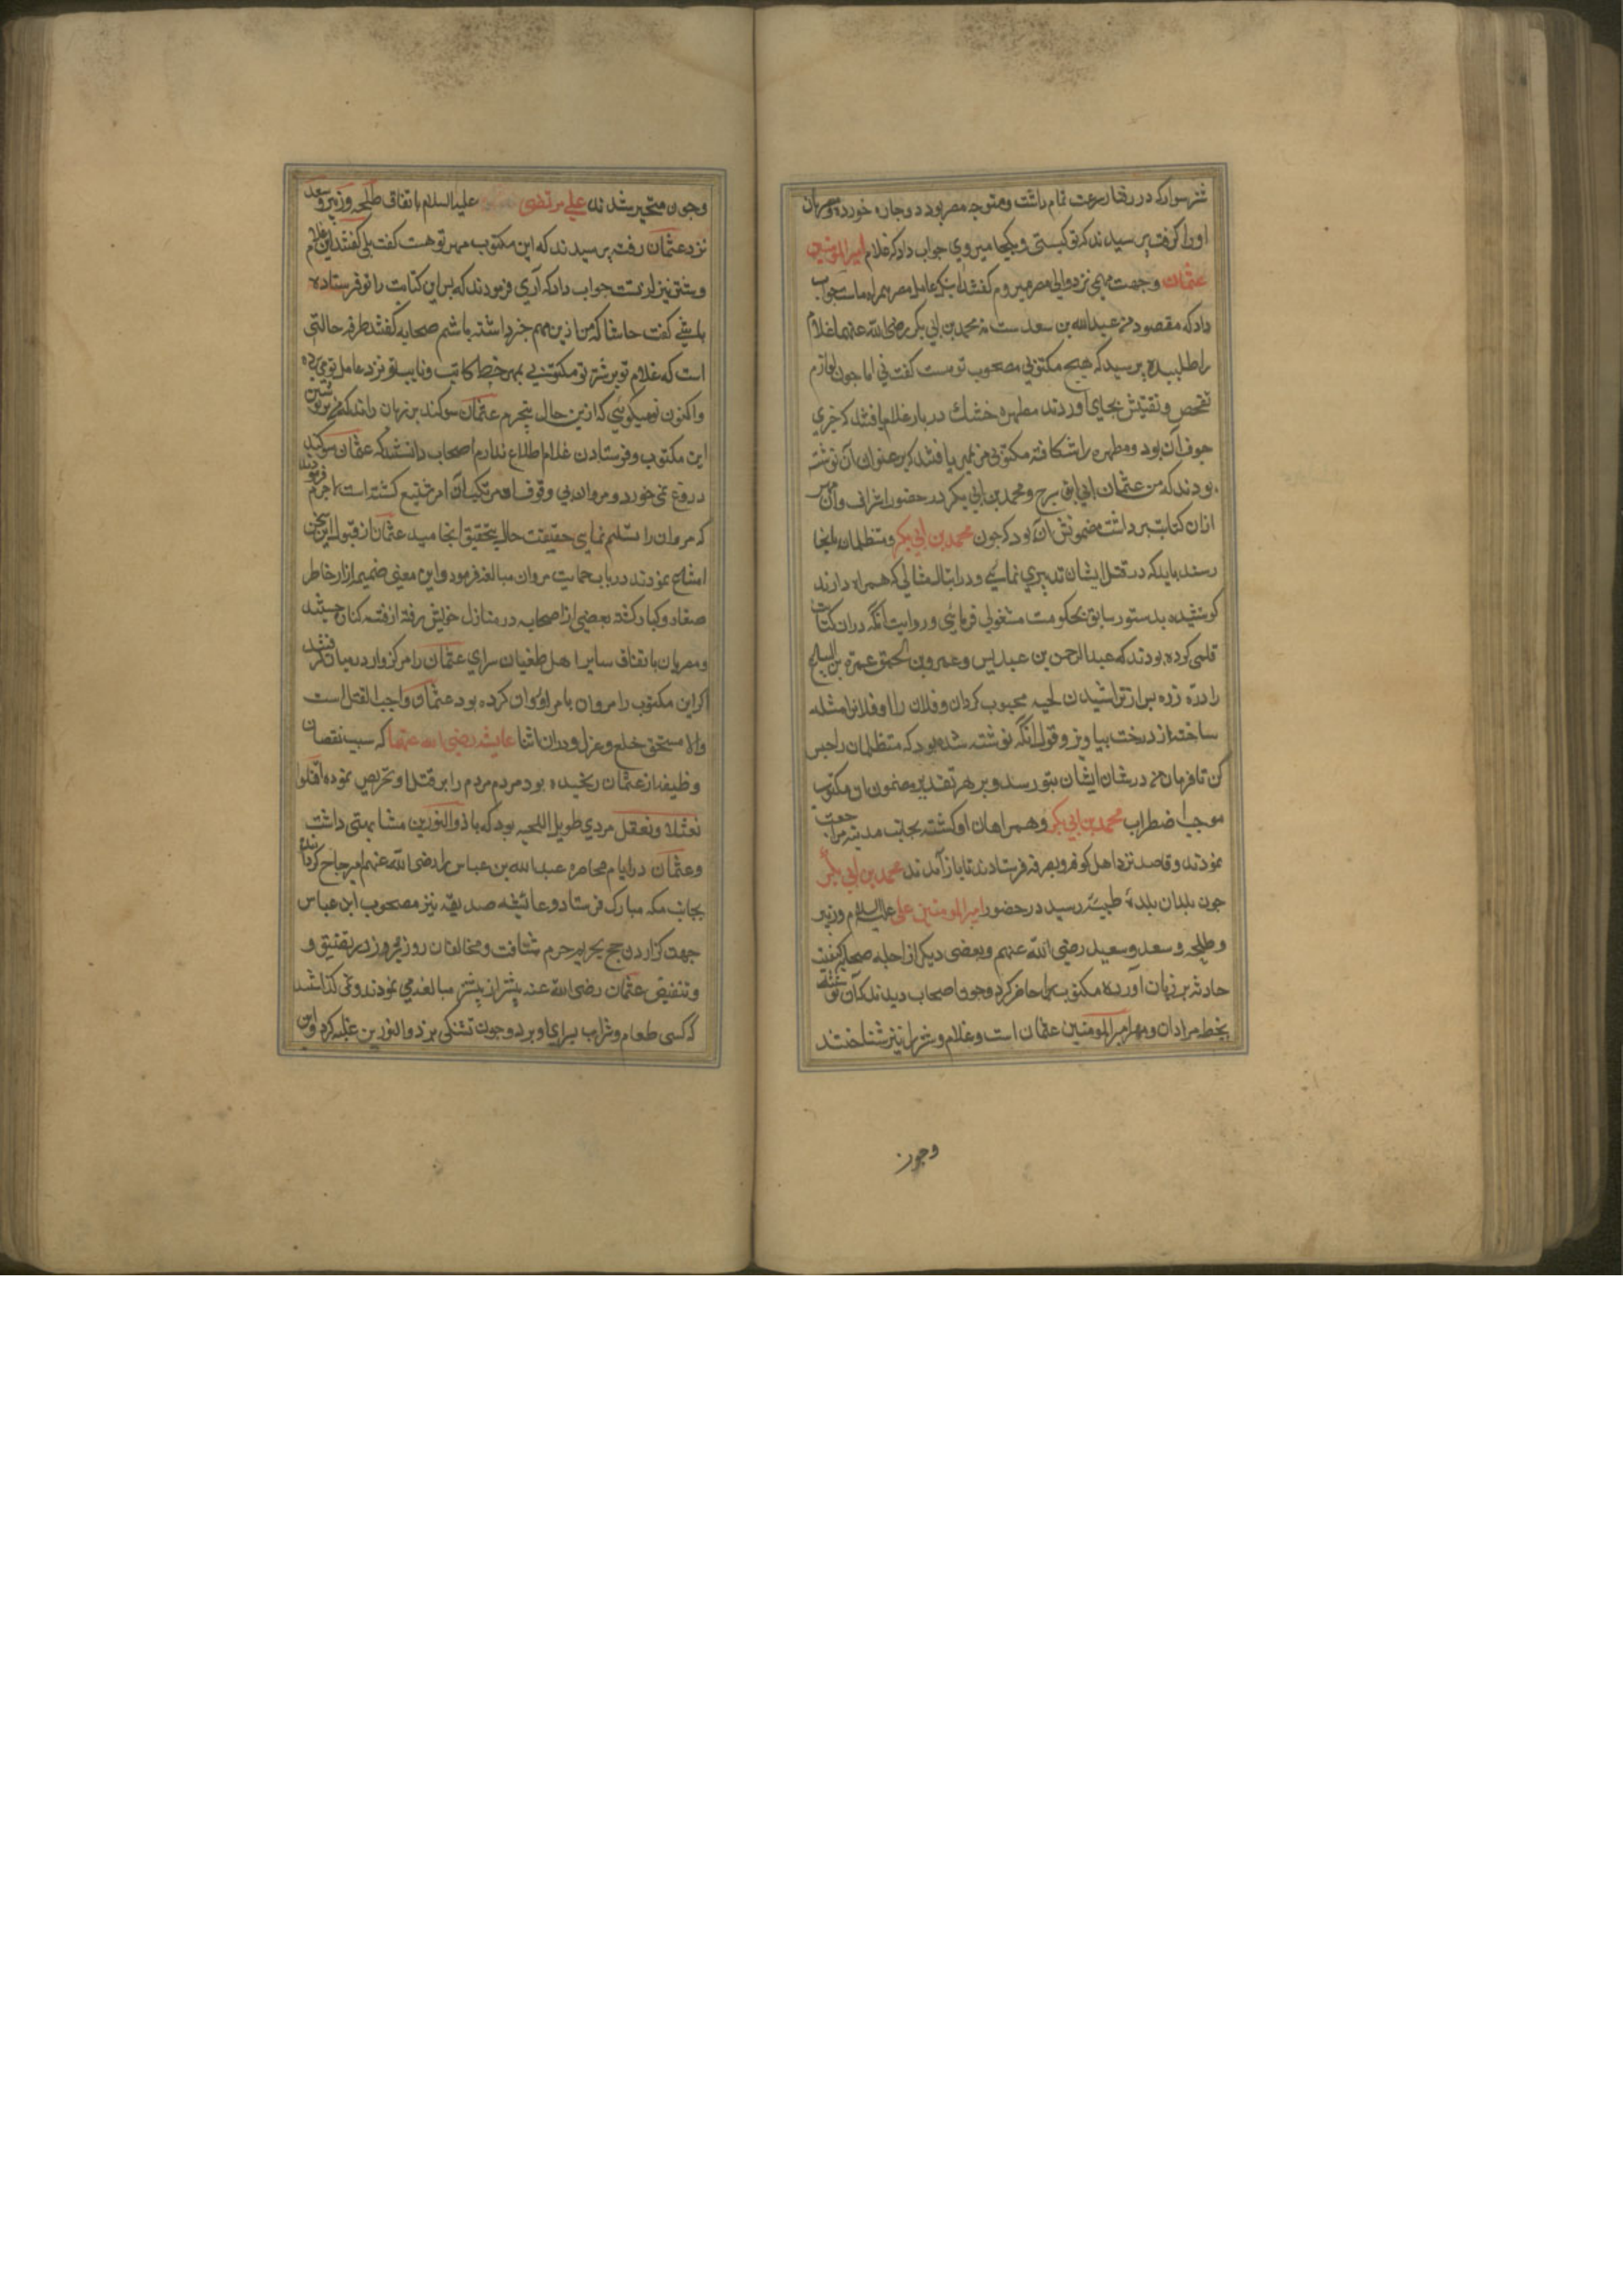 شتر سوار که در رفتار سرعت تمام داشت و متوجه مصر بود دوچار خورده مصریان
اورا گرفته پرسیدند که تو کیستی و بکجا میروی جواب داد که غلام امیرالمومنین
عثمان و جهت مهمی نزد والی مصر میروم گفتند اینک عامل مصر همراه ماست جواب
داد که مقصود من عبدالله بن سعد ست نه محمد بن ابی بکر رضی الله عنهما غلام
را طلبیده پرسید که هیچ مکتوبی مصحوب تو هست گفت نی اما چون لوازم
تفحص و تفتیش بجای آوردند مطهره خشک در بار غلام یافتند که چیزی
جوف آن بود و مطهره را شکافته مکتوبی یافتند که بر عنوان آن نوشته
بودند که من عثمان الی ابن سرح و محمد بن ابی بکر در حضور اشراف و اعیان مهر
ازان کتابت برداشت مضمونش آن بود که چون محمد بن ابی بکر و متظلمان بانجا
رسند باید که در قتل ایشان تدبیری نمائی و در ابطال مثالی که همراه دارند
کوشیده بدستور سابق بحکومت مشغولی فرمائی و روایت آنکه دران کتابت
قلمی کرده بودند که عبدالرحمن بن عبدیس و عمرو بن الحمق عمره بن
را دره زده پس از تراشیدن لحیه محبوس گردان و فلان را و فلانرا مثله
ساخته از درخت بیاویز و قول آنکه نوشته شده بود که متظلمان را حبس
کن تا فرمان من در شان ایشان بتو رسد و بر هر تقدیر مضمون آن مکتوب
موجب اضطراب محمد بن ابی بکر و همراهان او گشته بجانب مدینه مراجعت
نمودند و قاصد نزد اهل کوفه و بصره فرستادند تا باز آمدند محمد بن ابی بکر
چون بدان بلدهٔ طیبه رسید در حضور امیرالمومنین علی علیه السلام و زبیر
و طلحه و سعد و سعید رضی الله عنهم و بعضی دیگر از اجله صحابه کیفیت
حادثه بر زبان آورده مکتوب را حاضر کرد و چون اصحاب دیدند که آن نوشته
بخط مروان و مهر امیرالمومنین عثمان است و غلام و شتر را نیز شناختند
وچون
وچون متحیر شدند علی مرتضی علیه السلام باتفاق طلحه و زبیر و سعد
نزد عثمان رفته پرسیدند که این مکتوب مهر تو هست گفت بلی گفتند این غلام
و شتر نیز از تست جواب داد که آری فرمودند که پس این کتابت را تو فرستاده
باشی گفت حاشا که من ازین مهم خبر داشته باشم صحابه گفتند طرفه حالتی
است که غلام تو بر شتر تو مکتوبی بمهر و خط کاتب و نایب تو نزد عامل تو می برده
واکنون تو میگوئی که ازین حال بیخبرم عثمان سوگند بر زبان راند که من بر نوشتن
این مکتوب و فرستادن غلام اطلاع ندارم اصحاب دانستند که عثمان سوگند
دروغ نمی خورد و مروان بی وقوف او مرتکب آن امر شنیع گشته است لاجرم فرمودند
که مروان را تسلیم نمای حقیقت حال بتحقیق انجامید عثمان از قبول این سخن
امتناع نمودند در باب حمایت مروان مبالغه فرمود و این معنی ضمیر آزار خاطر
صغار و کبار گشته بعضی از اصحابه در منازل خویش رفته از فتنه کناره جستند
ومصریان باتفاق سایر اهل طغیان سرای عثمان را مرکزوار درمیان گرفتند
اگر این مکتوب را مروان بامر او روان کرده بود عثمان واجب القتل است
والا مستحق خلع و عزل و دران اثنا عایشه رضی الله عنها که سبب نقصان
وظیفه از عثمان رنجیده بود مردم را بر قتل او تحریص نموده اقتلوا
نعثلا و نعثل مردی طویل اللحیه بود که با ذوالنورین مشابهتی داشت
وعثمان در ایام محاصره عبدالله بن عباس را رضی الله عنهم امیر حاج گردانیده
بجانب مکه مبارک فرستاد و عائیشه صدیقه نیز مصحوب ابن عباس
جهت گزاردن حج بحریم حرم شتافت و مخالفان روز بروز در تضییق و
وتنفیص عثمان رضی الله عنه بیشتر از پیشتر مبالغه می نمودند و نمی گذاشتند
که کسی طعام و شراب بسرای او برد و چون تشنگی بر ذوالنورین غلبه کرد و این